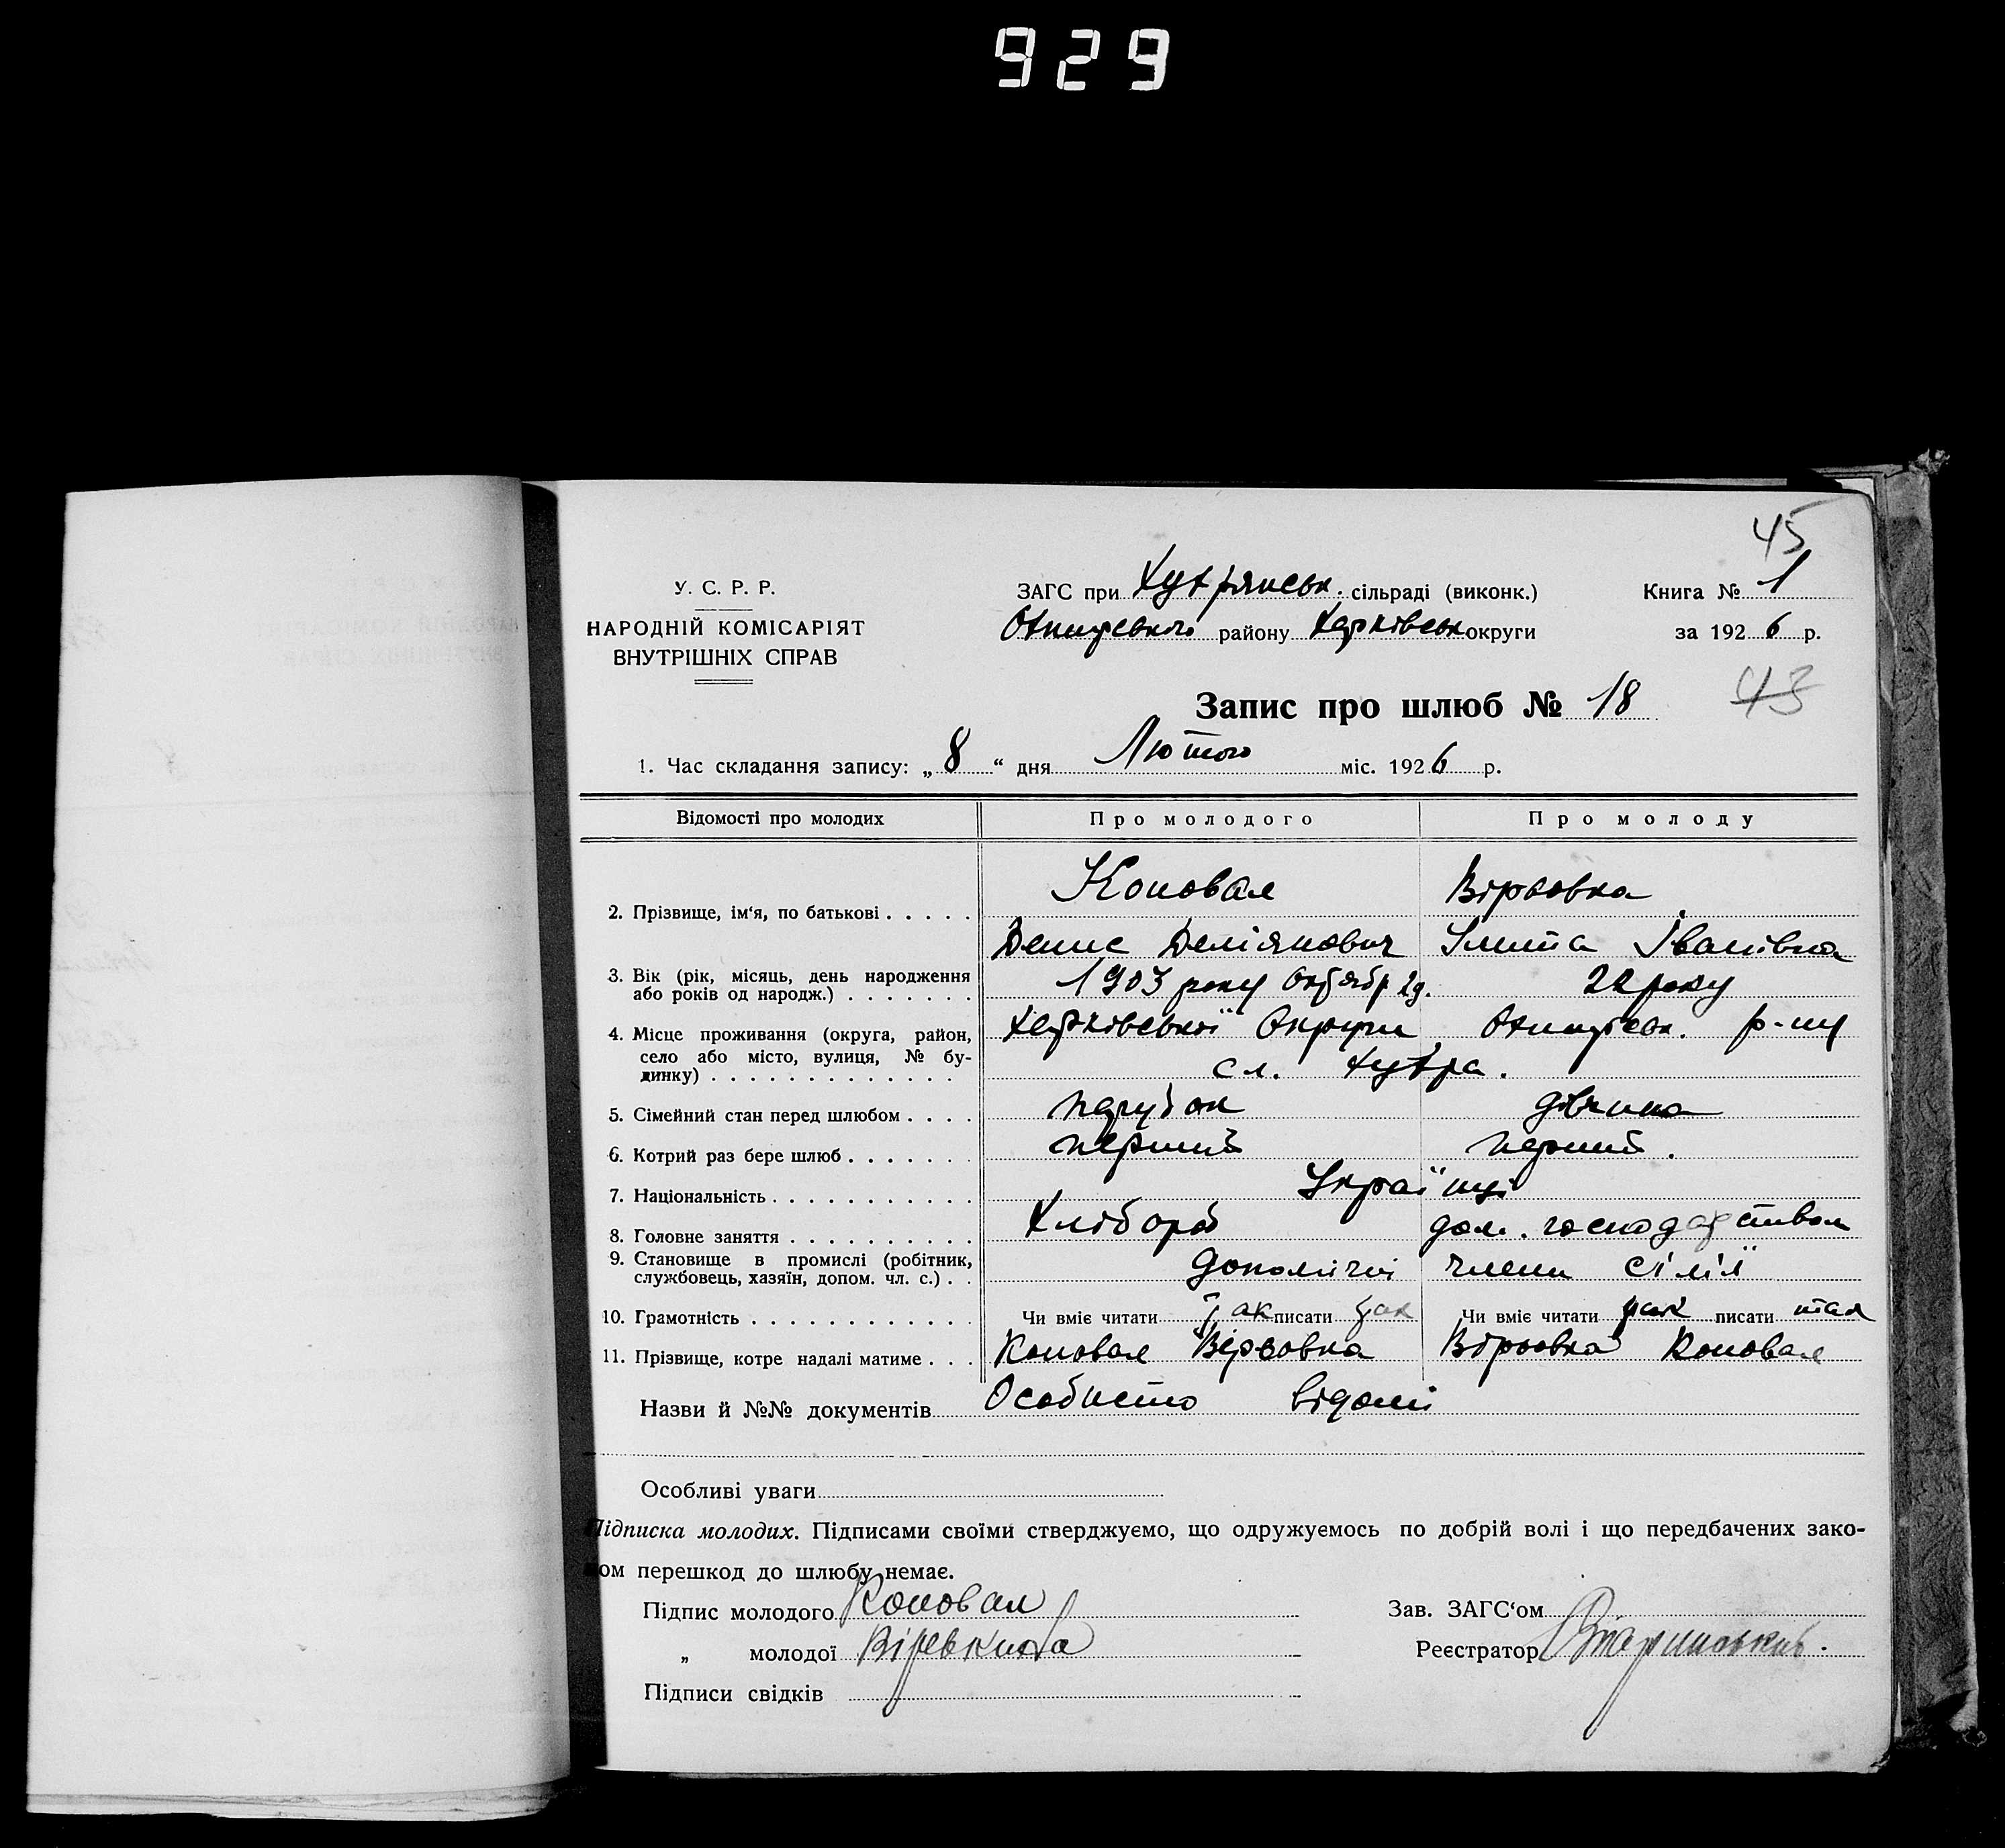 929
45
У. С. Р. Р.
НАРОДНІЙ КОМІСАРІЯТ
ВНУТРІШНІХ СПРАВ
ЗАГС при сільраді (виконк.)
району Харківськ округи
Книга № 1
за 1926 р.
Запис про шлюб № 18
43
1. Час складання запису: „ 8 “ дня Лютого міс. 1926 р.
Відомості про молодих Про молодого Про молоду
Коновал Вірьовка
2. Прізвище, ім‘я, по батькові . . . . .
Денис Іванівна
3. Вік (рік, місяць, день народження
або років од народж.) . . . . . . .
1903 року Октябр 2д. 22 року
4. Місце проживання (округа, район,
село або місто, вулиця, № бу-
динку) . . . . . . . . . . . . .
Харківської Округи р-ну
сл.
5. Сімейний стан перед шлюбом . . . . парубок дівчина
6. Котрий раз бере шлюб . . . . . . . перший перший.
7. Національність . . . . . . . . . . . Українці
8. Головне заняття . . . . . . . . . . Хлібороб дом. господарством
9. Становище в промислі (робітник,
службовець, хазяїн, допом. чл. с.) . .
допомічні члени сім'ї
10. Грамотність . . . . . . . . . . . . Чи вміє читати так писати так Чи вміє читати так писати так
11. Прізвище, котре надалі матиме . . . Коновал Вірьовка Вірьовка Коновал
Назви й №№ документів Особисто відомі
Особливі уваги
Підписка молодих. Підписами своїми стверджуємо, що одружуємось по добрій волі і що передбачених зако-
ном перешкод до шлюбу немає.
Підпис молодого Коновал
„ молодої
Підписи свідків
Зав. ЗАГС‘ом
Реєстратор